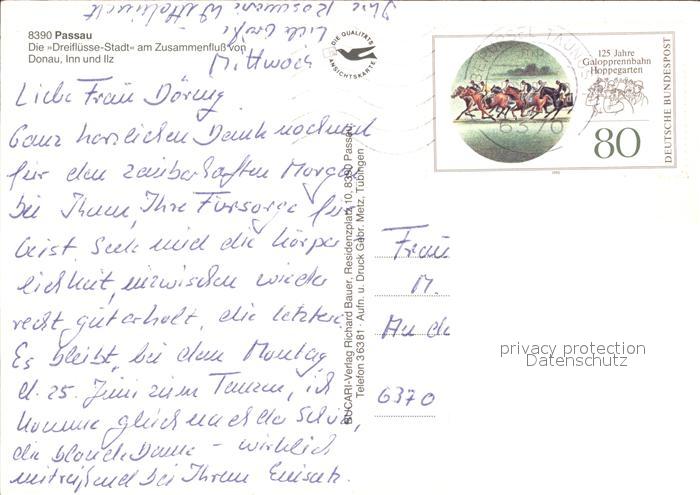 Ihre Rosemarie
Liebe Grüße
8390 Passau
Die »Dreiflüsse-Stadt« am Zusammenfluß von
Donau, Inn und Ilz
Mittwoch
Liebe Frau Döring,
Ganz herzlichen Dank nochmal
für den zauberhaften Morgen
bei Ihnen, Ihre Fürsorge für
Geist, Seele und die Körper
lichkeit, inzwischen wieder
recht gut erholt, die letztere.
Es bleibt bei dem Montag
d. 25. Juni zum Tanzen, ich
komme gleich nach der Schule,
die blonde Dame - wirklich
mitreißend bei Ihrem Einsatz.
DIE QUALITÄTS
ANSICHTSKARTE
BUCARI-Verlag Richard Bauer, Residenzplatz 10, 8390 Passau
Telefon 3 63 81 · Aufn. u. Druck Gebr. Metz, Tübingen
125 Jahre
Galopprennbahn
Hoppegarten
80
DEUTSCHE BUNDESPOST
TAUNUS
6370
Frau
M.
An de
6370
privacy protection
Datenschutz